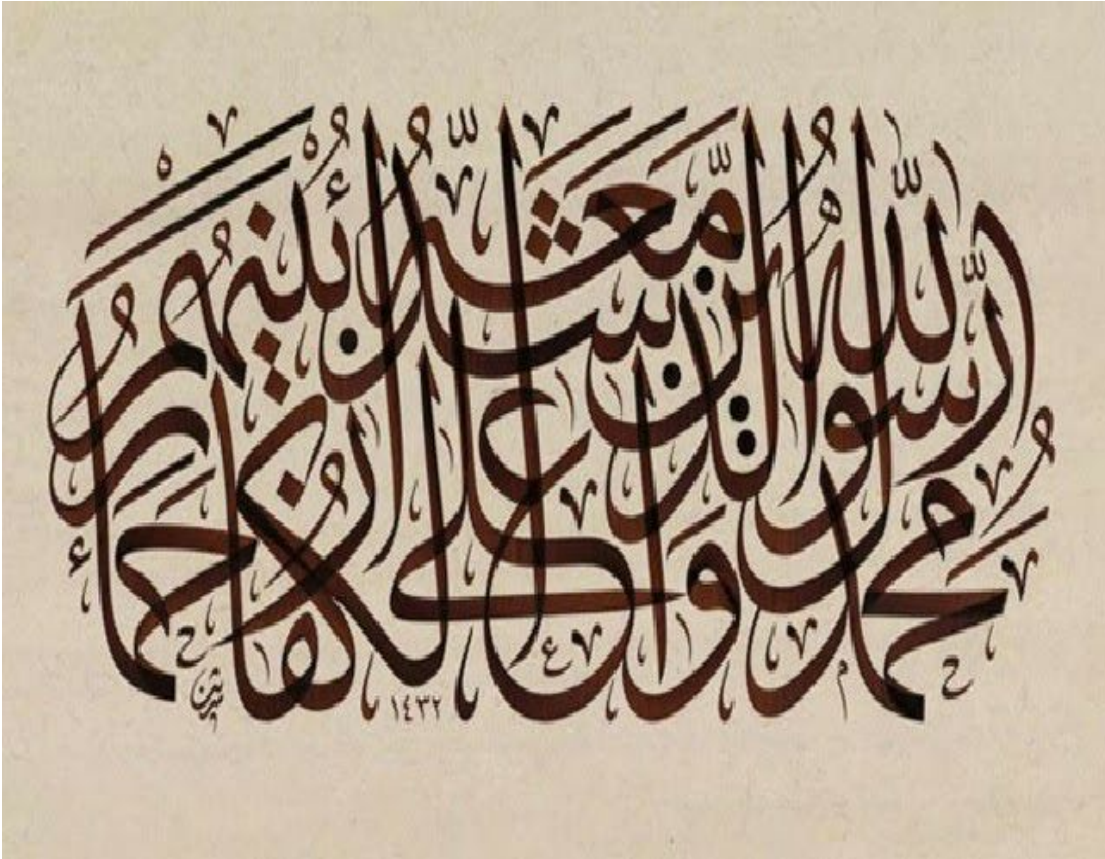 مُحَمَّدٌ رَسُولُ اللّٰهِ وَالَّذِينَ مَعَهُ أَشِدَّاءُ عَلَى الْكُفَّارِ رُحَمَاءُ بَيْنَهُمْ
١٤٣٢